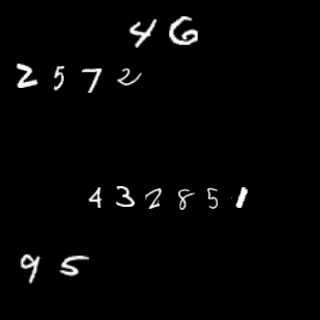 46
2572
432851
95